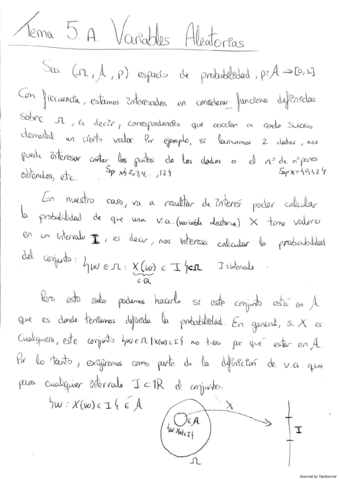 Tema 5.A. Variables Aleatorias
Sea (Ω, A, p) espacio de probabilidad, p: A → [0,1]
Con frecuencia, estamos interesados en considerar funciones definidas
sobre Ω, es decir, correspondencias que asocian a cada suceso
elemental un cierto valor. Por ejemplo, si lanzamos 2 dados, nos
puede interesar contar los puntos de los dados o el nº de nºs pares
obtenidos, etc.
En nuestro caso, va a resultar de interés poder calcular
la probabilidad de que una v.a. (variable aleatoria) X tome valores
en un intervalo I, es decir, nos interesa calcular la probabilidad
del conjunto: {w ∈ Ω : X(w) ∈ I} ⊂ Ω I intervalo.
∈ R
Pero esto solo podemos hacerlo si este conjunto está en A
que es donde tenemos definida la probabilidad. En general, si X es
cualquiera, este conjunto {w ∈ Ω | X(w) ∈ I} no tiene por qué estar en A.
Por lo tanto, exigiremos como parte de la definición de v.a. que
para cualquier intervalo I ⊂ R el conjunto:
{w : X(w) ∈ I} ∈ A
∈ A
X
I
{w: X(w) ∈ I}
Ω
Scanned by TapScanner